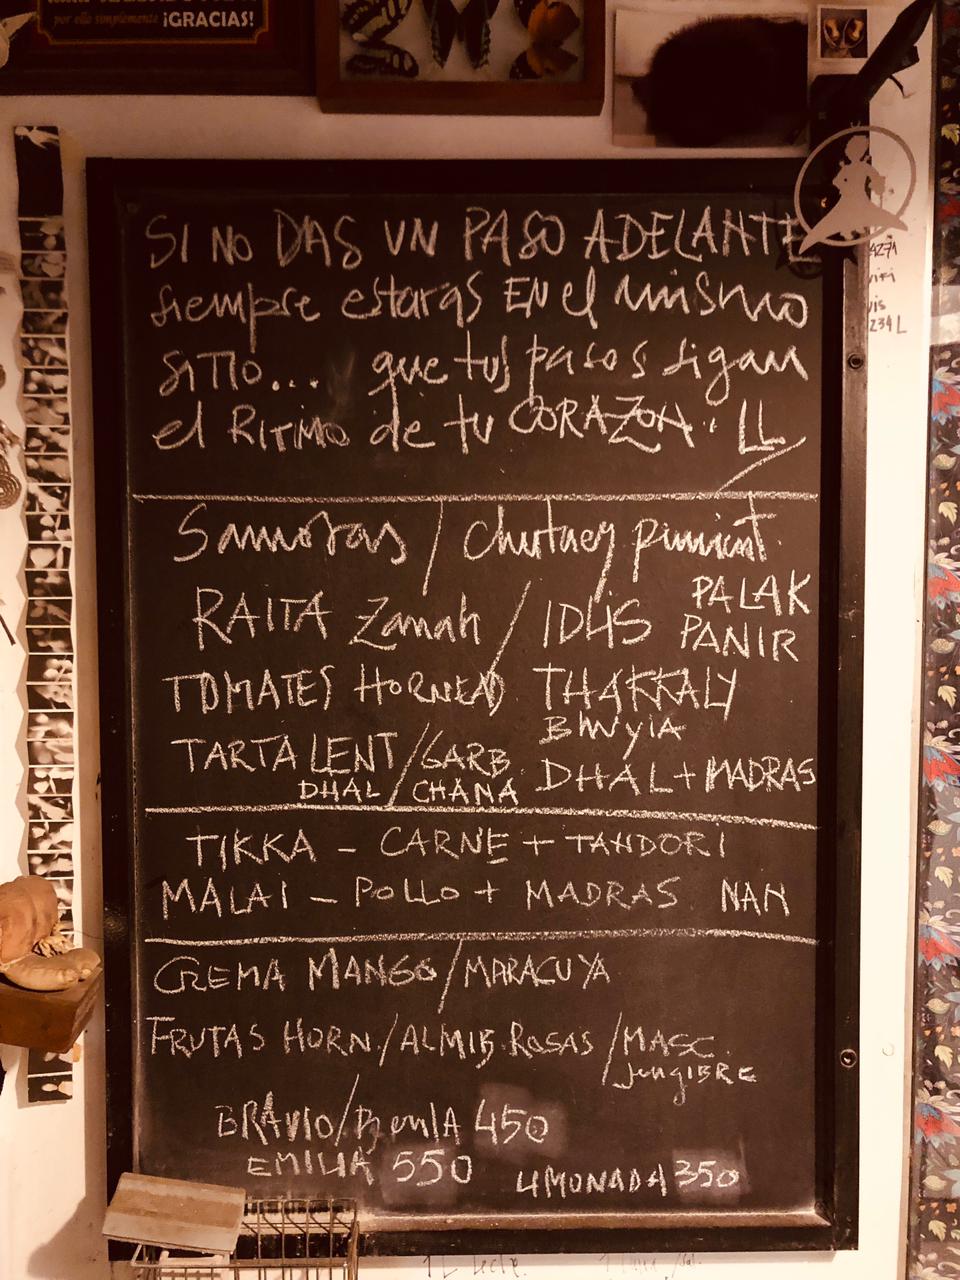 por ello simplemente ¡GRACIAS!
SI NO DAS UN PASO ADELANTE
siempre estaras EN el mismo
SITIO... que tus pasos sigan
el RITMO de tu CORAZON. LL
Samosas / Chutney pimient.
RAITA Zanah / IDLIS PALAK PANIR
TOMATES HORNEAD THAKKALY
BHNYIA
TARTA LENT / GARB. DHAL + MADRAS
DHAL / CHANA
TIKKA - CARNE + TANDORI
MALAI - POLLO + MADRAS NAN
CREMA MANGO / MARACUYA
FRUTAS HORN. / ALMIB. ROSAS / MASC.
JENGIBRE
BRAVIO / 450
EMILIA 550 LIMONADA 350
4271
234 L
1 L Leche.